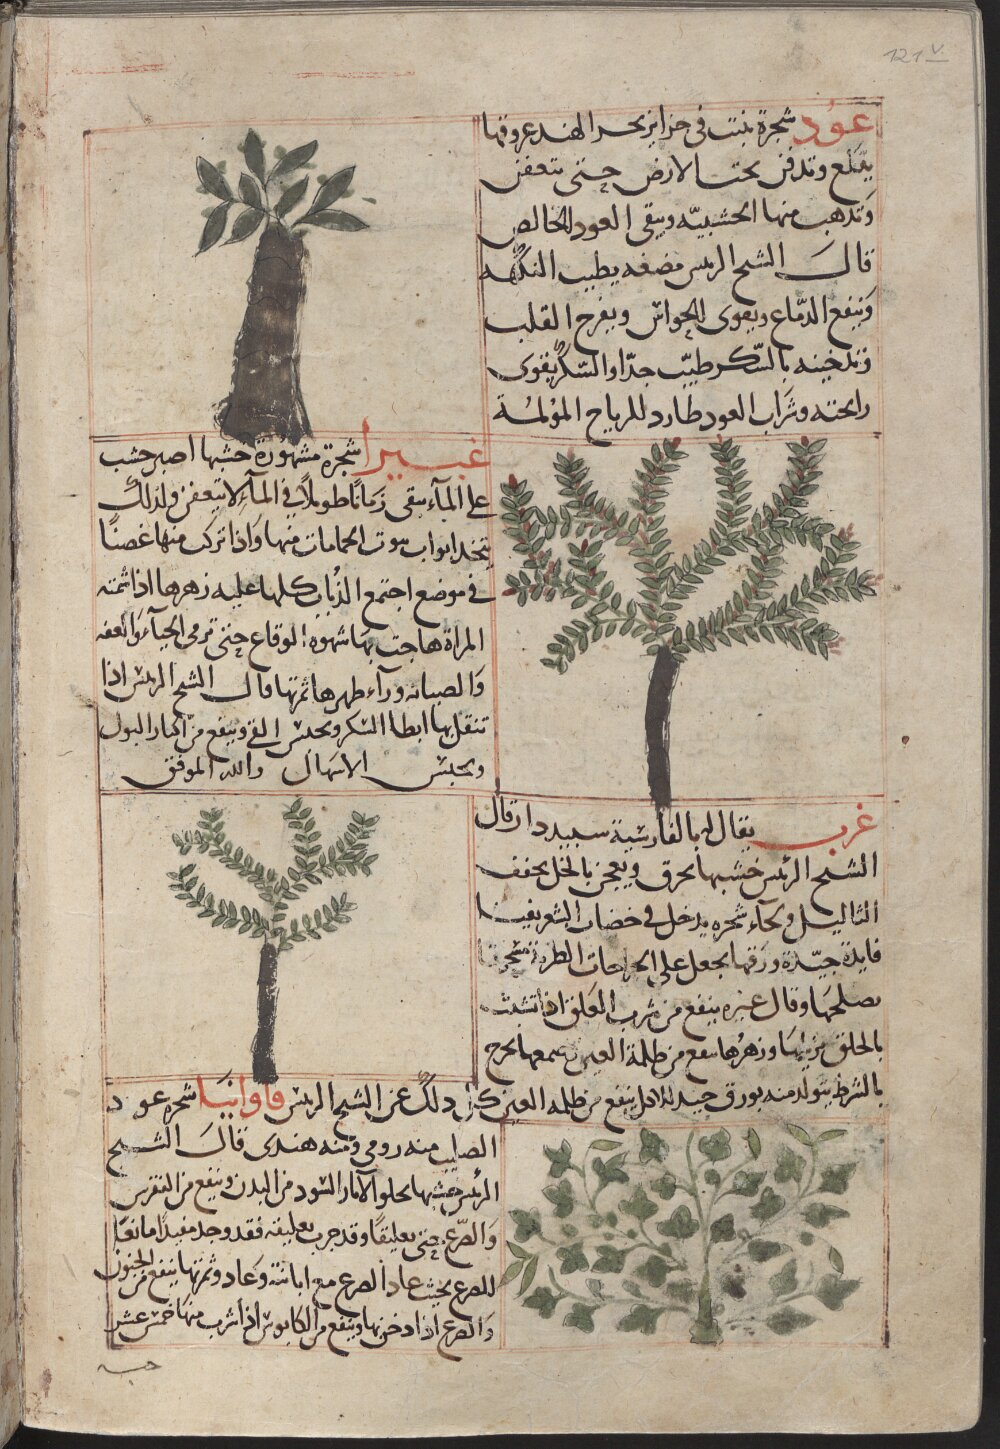 121 v.
عود شجرة تنبت في جزاير بحر الهند عروقها
يقلع وتدفن تحت الارض حتى تتعفن
وتذهب منها الخشبيّه ويبقى العود الخالص
قال الشيخ الريس مضغه يطيب النكهه
وينفع الدماغ ويقوى الحواس ويفرح القلب
وتدخينه بالسّكر طيّب جدّا والسّكر يقوى
رايحته وشراب العود طارد للرياح المؤلمة
غبيرا شجرة مشهورة خشبها اصبر خشب
على الماء يبقى زمانا طويلا في الماء لا يتعفن ولذلك
يتخذ ابواب بيوت الحمامات منها واذا ترك منها غصنا
في موضع اجتمع الذباب كلها عليه زهرها اذا شمته
المراة هاجت بها شهوه الوقاع حتى ترمى الحياء والعفه
والصيانه ورآء ظهرها ثمرتها قال الشيخ الريس اذا
تنقل بها ابطا السكر ويحبس القئ وينفع من اكثار البول
ويحبس الاسهال والله الموفق
غرب يقال لها بالفارسية سبيد دار قال
الشيخ الرئيس خشبها يحرق ويعجن بالخل يجفف
الثاليل ولحاء شجره يدخل في خضاب الشعر يفيد
فايدة جيّدة ورقها يجعل على الجراحات الطرية
يصلحها وقال غيره ينفع من شرب العلق اذا تشبث
بالحلق وزهرها ينفع من ظلمة العين صمغها يخرج
بالشرط يتولد منه بورق جيد للاكل ينفع من ظلمه العين
ذلك عن الشيخ الريس فاوانيا شجره عود
الصليب منه رومي ومنه هندى قال الشيخ
الرئيس خشبها يجلوا الآثار السود من البدن وينفع من النقرس
والصرع حتى تعليقا وقد جرب تعليقه فقد وجد مفيدا مانعا
للصرع بحيث عاد الصرع مع ابانته وعاد وثمرتها ينفع من الجنون
والصرع اذا دخن بها وينفع من الكابوس اذا شرب منها خمس عشر
حبه